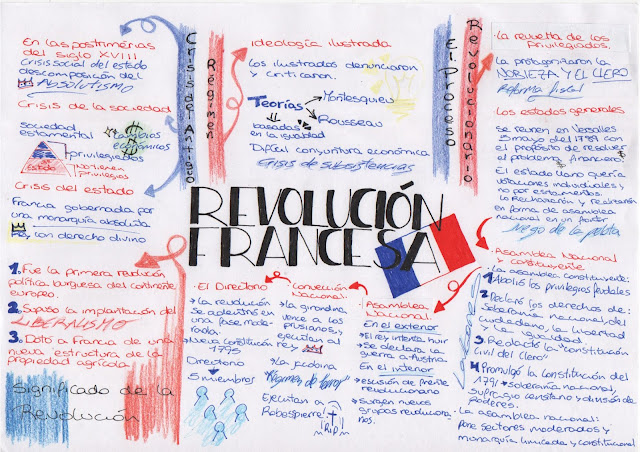 En las postrimerías
del siglo XVIII
Crisis social del estado
descomposición del
ABSOLUTISMO
Crisis de la sociedad
Sociedad
estamental
Cambios
económicos
privilegiados
3er
Estado
No tienen
privilegios
Crisis del estado
Francia gobernada por
una monarquía absoluta
con derecho divino
Crisis del Antiguo
Régimen
Ideología ilustrada
Los ilustrados denunciaron
y criticaron.
Teorías
Montesquieu
Rousseau
basadas
en la igualdad
Difícil conyuntura económica
Crisis de subsistencias
El Proceso
Revolucionario
La revuelta de los
privilegiados.
La protagonizaron la
NOBLEZA Y EL CLERO
Reforma fiscal
Los estados generales
Se reunen en Versalles
5 mayo del 1789 con
el propósito de resolver
el problema financiero
El estado llano quería
votaciones individuales y
no por estamentos.
Lo rechazaron y
en forma de asamblea
nacional en un frontón
Juego de la pelota
REVOLUCIÓN
FRANCESA
Asamblea Nacional
y constituyente
La asamblea constituyente:
1 Abolió los privilegios feudales
2 Declaró los derechos de:
Soberanía nacional, del
ciudadano, la libertad
y la igualdad
3 Redactó la constitución
Civil del Clero
4 Promulgó la constitución del
1791 → soberanía nacional,
sufragio censitario y división de
poderes.
La asamblea nacional:
Pone sectores moderados y
monarquía limitada y constitucional
Asamblea
Nacional
En el exterior
→ El rey intenta huir
→ Se declara la
guerra a Austria
En el interior
→ escisión de frente
revolucionario
→ surgen nuevos
grupos revoluciona
rios.
Convección
Nacional.
→ La girondina,
vence a los
prusianos, y
ejecutan al
rey
→ La jacobina
"Régimen de terror"
Ejecutan a
Robespierre
RIP
El Directorio
→ La revolución
se adentró en
una fase mode
rada.
→ Nueva constitución
1795
Directorio
5 miembros
1. Fue la primera revolución
política burguesa del continente
europeo.
2. Supuso la implantación del
LIBERALISMO
3. Dotó a Francia de una
nueva estructura de la
propiedad agrícola
Significado de la
Revolución